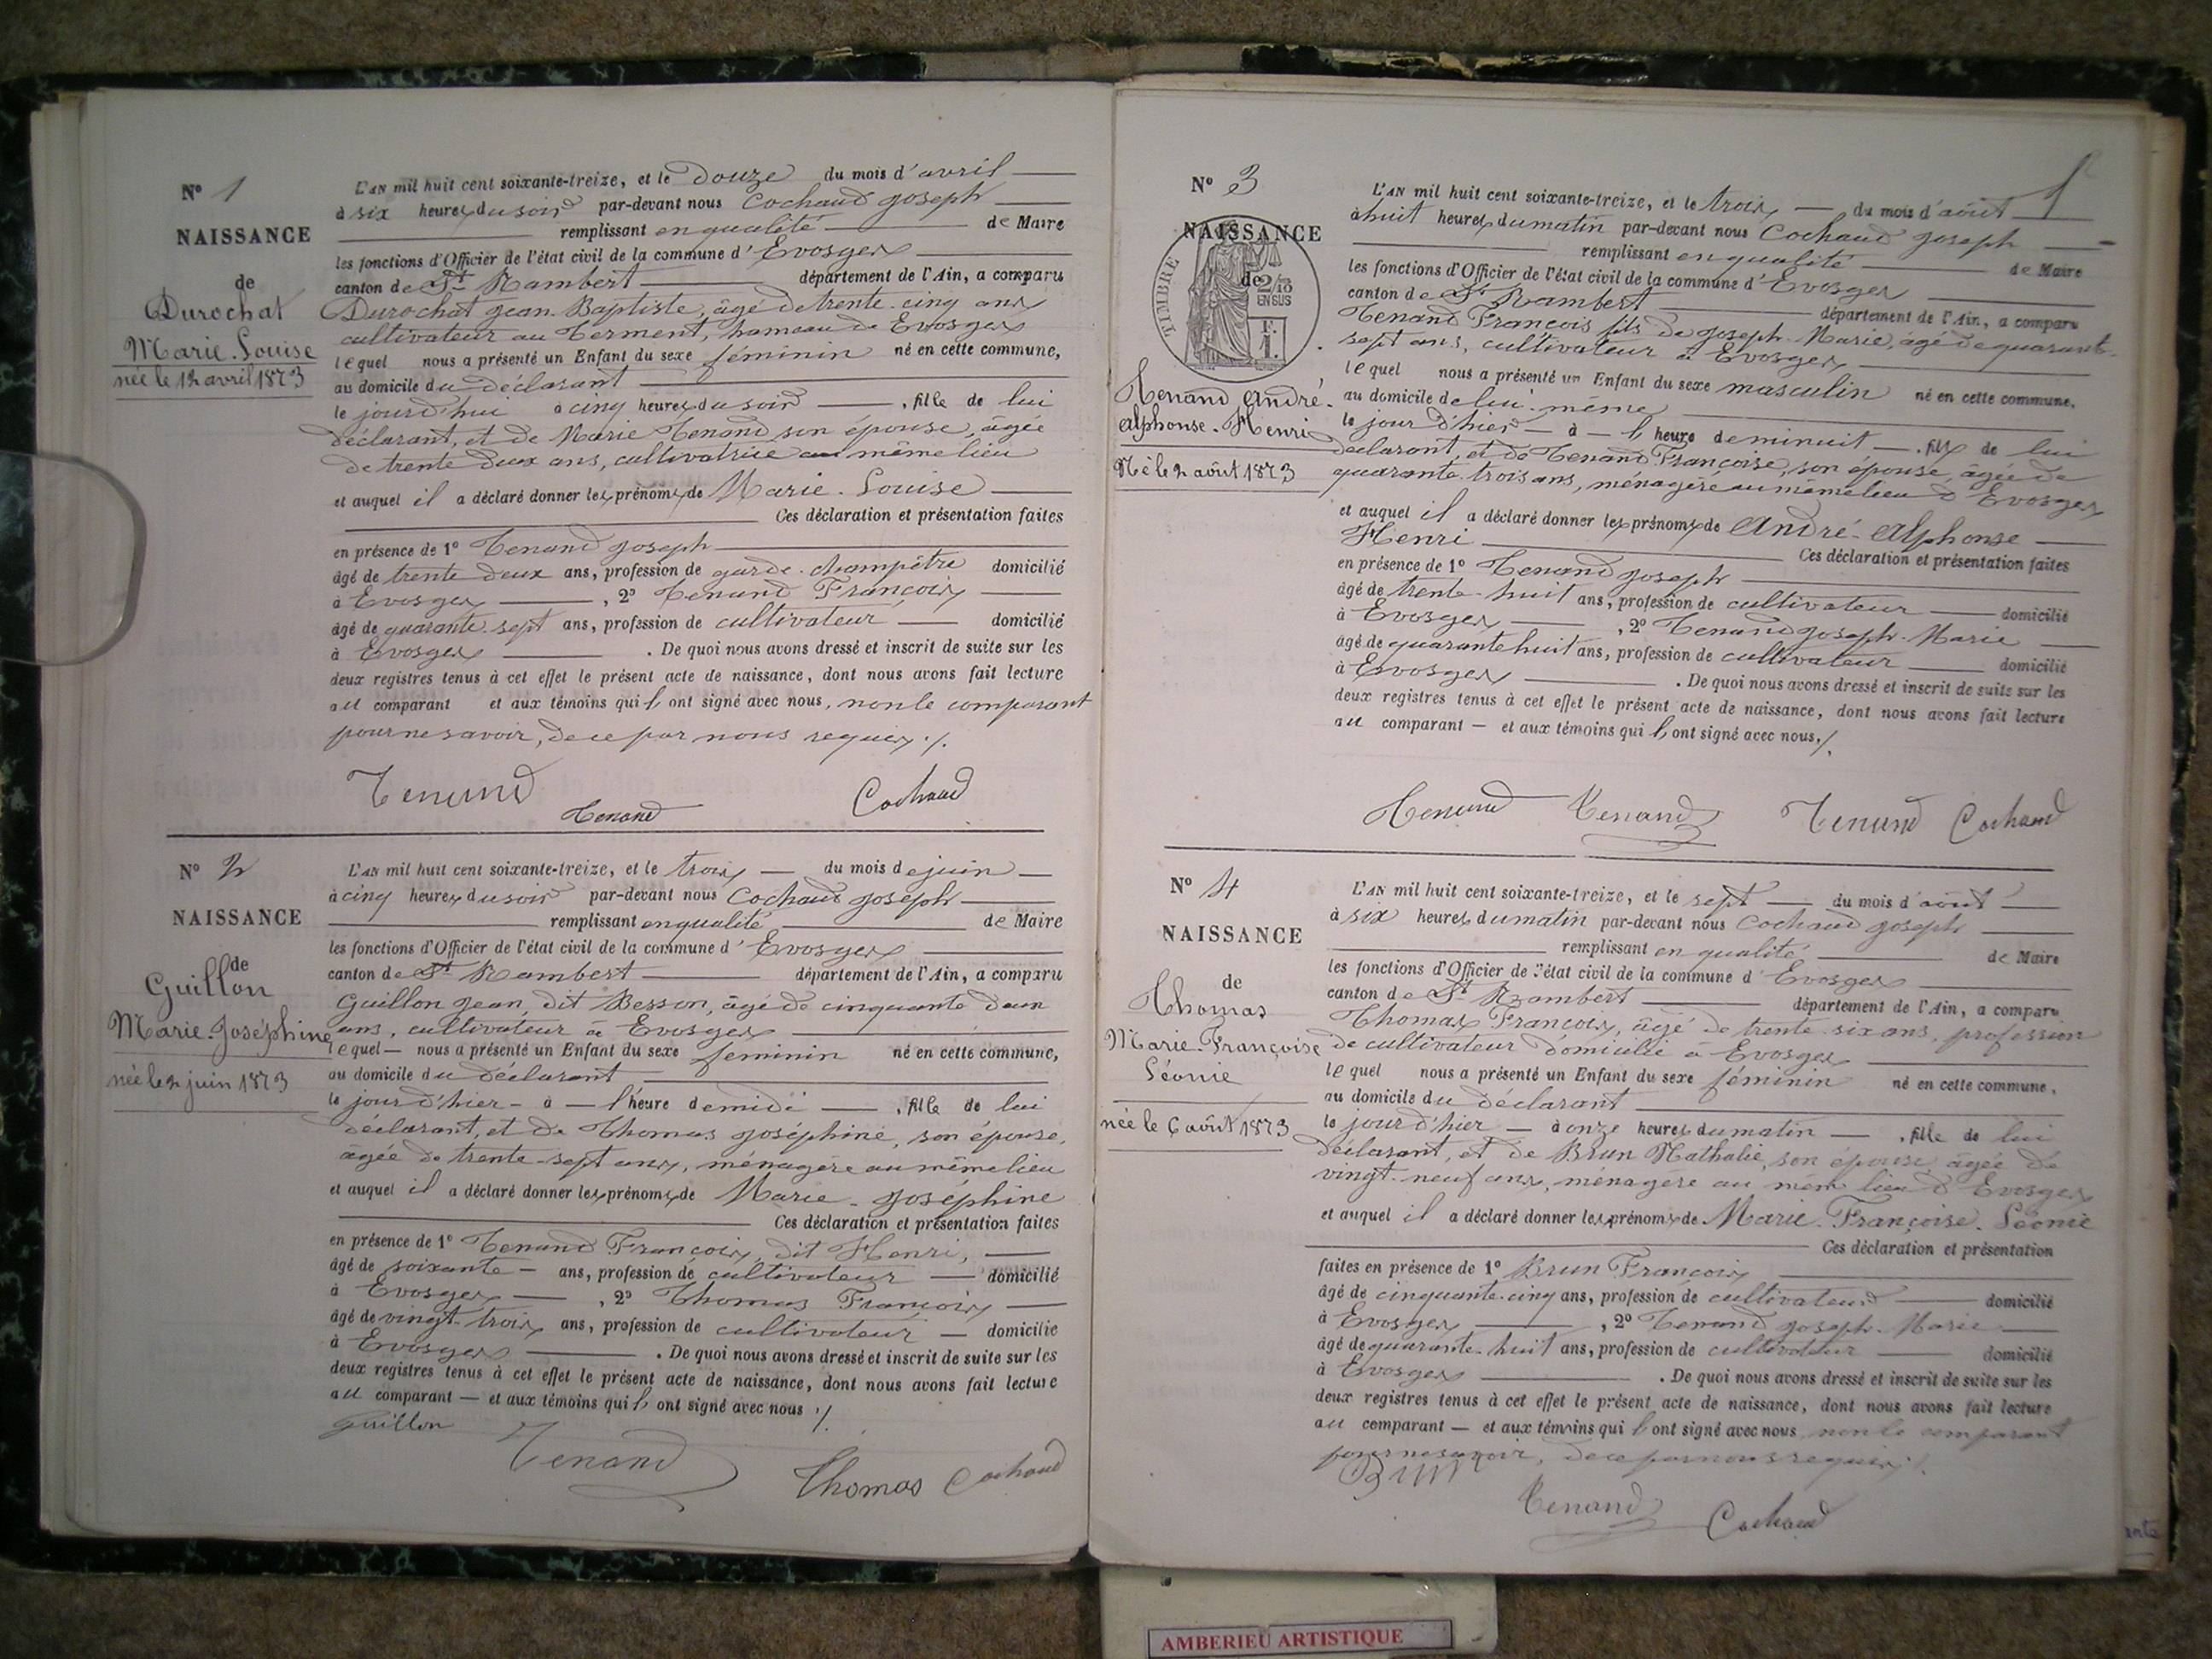 N° 1
NAISSANCE
de
Durochat
Marie-Louise
née le 12 avril 1873
L'AN mil huit cent soixante-treize, et le douze du mois d'avril
à six heures du soir par-devant nous Cochaud Joseph
remplissant en qualité de Maire
les fonctions d'Officier de l'état civil de la commune d'Evosges
canton de St Rambert département de l'Ain, a comparu
Durochat Jean-Baptiste, âgé de trente-cinq ans
cultivateur au Terment, hameau de Evosges
lequel nous a présenté un Enfant du sexe féminin né en cette commune,
au domicile du déclarant
le jourd'hui à cinq heures du soir, fille de lui
déclarant, et de Marie Tenand son épouse, âgée
de trente deux ans, cultivatrice au même lieu
et auquel il a déclaré donner les prénoms de Marie-Louise
Ces déclaration et présentation faites
en présence de 1° Tenand Joseph
âgé de trente deux ans, profession de garde-champêtre domicilié
à Evosges, 2° Tenand François
âgé de quarante-sept ans, profession de cultivateur domicilié
à Evosges. De quoi nous avons dressé et inscrit de suite sur les
deux registres tenus à cet effet le présent acte de naissance, dont nous avons fait lecture
au comparant et aux témoins qui l ont signé avec nous, non le comparant
pour ne savoir, de ce par nous requis ./.
Tenand
Tenand
Cochaud
N° 2
NAISSANCE
de
Guillon
Marie-Joséphine
née le 2 juin 1873
L'AN mil huit cent soixante-treize, et le trois du mois de juin
à cinq heures du soir par-devant nous Cochaud Joseph
remplissant en qualité de Maire
les fonctions d'Officier de l'état civil de la commune d'Evosges
canton de St Rambert département de l'Ain, a comparu
Guillon Jean, dit Besson, âgé de cinquante deux
ans, cultivateur à Evosges
lequel nous a présenté un Enfant du sexe féminin né en cette commune,
au domicile du déclarant
le jour d'hier à l'heure de midi, fille de lui
déclarant, et de Thomas Joséphine, son épouse,
âgée de trente-sept ans, ménagère au même lieu
et auquel il a déclaré donner les prénoms de Marie-Joséphine
Ces déclaration et présentation faites
en présence de 1° Tenand François, dit Henri,
âgé de soixante ans, profession de cultivateur domicilié
à Evosges, 2° Thomas François
âgé de vingt-trois ans, profession de cultivateur domicilié
à Evosges. De quoi nous avons dressé et inscrit de suite sur les
deux registres tenus à cet effet le présent acte de naissance, dont nous avons fait lecture
au comparant et aux témoins qui l ont signé avec nous ./.
Guillon
Tenand
Thomas
Cochaud
1
N° 3
NAISSANCE
de
TIMBRE
2/10
EN SUS
F.
1.
Tenand André-
Alphonse-Henri
Né le 2 août 1873
L'AN mil huit cent soixante-treize, et le trois du mois d'août
à huit heures du matin par-devant nous Cochaud Joseph
remplissant en qualité de Maire
les fonctions d'Officier de l'état civil de la commune d'Evosges
canton de St Rambert département de l'Ain, a comparu
Tenand François fils de Joseph-Marie, âgé de quarante-
sept ans, cultivateur à Evosges
lequel nous a présenté un Enfant du sexe masculin né en cette commune,
au domicile de lui-même
le jour d'hier à l heure de minuit, fils de lui
déclarant, et de Tenand Françoise, son épouse, âgée de
quarante-trois ans, ménagère au même lieu d'Evosges
et auquel il a déclaré donner les prénoms de André-Alphonse
Henri
Ces déclaration et présentation faites
en présence de 1° Tenand Joseph
âgé de trente-huit ans, profession de cultivateur domicilié
à Evosges, 2° Tenand Joseph-Marie
âgé de quarante huit ans, profession de cultivateur domicilié
à Evosges. De quoi nous avons dressé et inscrit de suite sur les
deux registres tenus à cet effet le présent acte de naissance, dont nous avons fait lecture
au comparant et aux témoins qui l ont signé avec nous ./.
Tenand
Tenand
Tenand
Cochaud
N° 4
NAISSANCE
de
Thomas
Marie-Françoise
Léonie
née le 6 août 1873
L'AN mil huit cent soixante-treize, et le sept du mois d'août
à six heures du matin par-devant nous Cochaud Joseph
remplissant en qualité de Maire
les fonctions d'Officier de l'état civil de la commune d'Evosges
canton de St Rambert département de l'Ain, a comparu
Thomas François, âgé de trente-six ans, profession
de cultivateur domicilié à Evosges
lequel nous a présenté un Enfant du sexe féminin né en cette commune,
au domicile du déclarant
le jour d'hier à onze heures du matin, fille de lui
déclarant, et de Brun Nathalie, son épouse, âgée de
vingt-neuf ans, ménagère au mem lieu d'Evosges
et auquel il a déclaré donner les prénoms de Marie-Françoise-Léonie
Ces déclaration et présentation
faites en présence de 1° Brun François
âgé de cinquante-cinq ans, profession de cultivateur domicilié
à Evosges, 2° Tenand Joseph-Marie
âgé de quarante-huit ans, profession de cultivateur domicilié
à Evosges. De quoi nous avons dressé et inscrit de suite sur les
deux registres tenus à cet effet le présent acte de naissance, dont nous avons fait lecture
au comparant et aux témoins qui l ont signé avec nous non le comparant
pour ne savoir, de ce par nous requis ./.
Brun
Tenand
Cochaud
AMBERIEU ARTISTIQUE